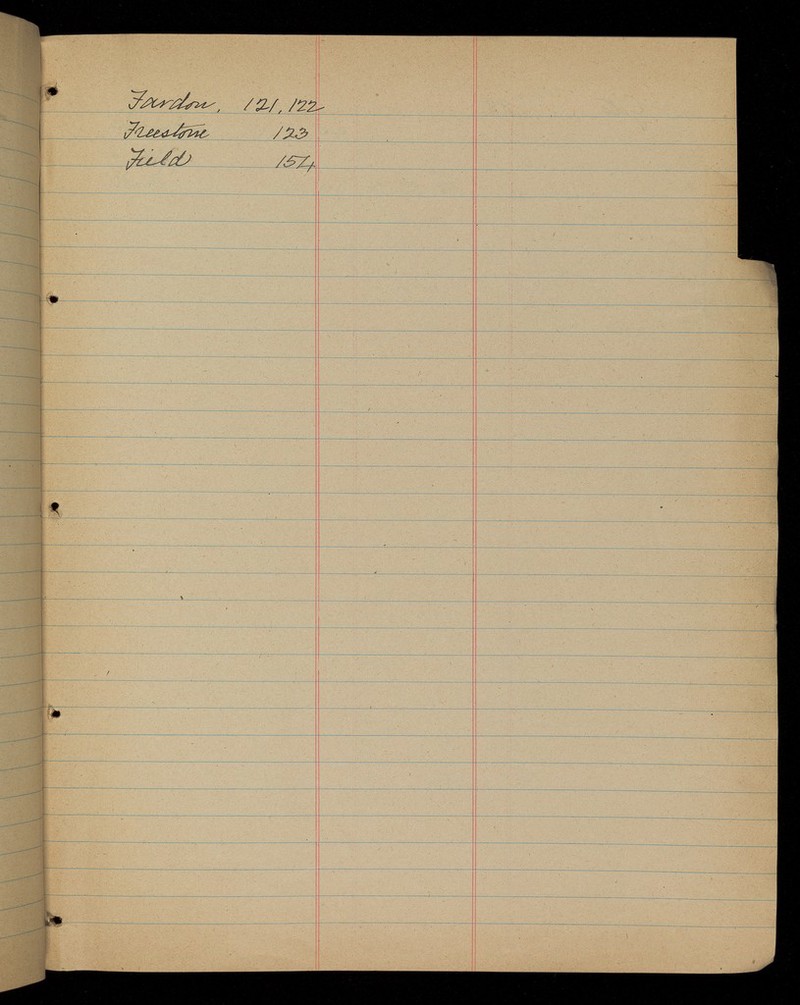 Fardon. 121, 122
Freestone 123
Field 154